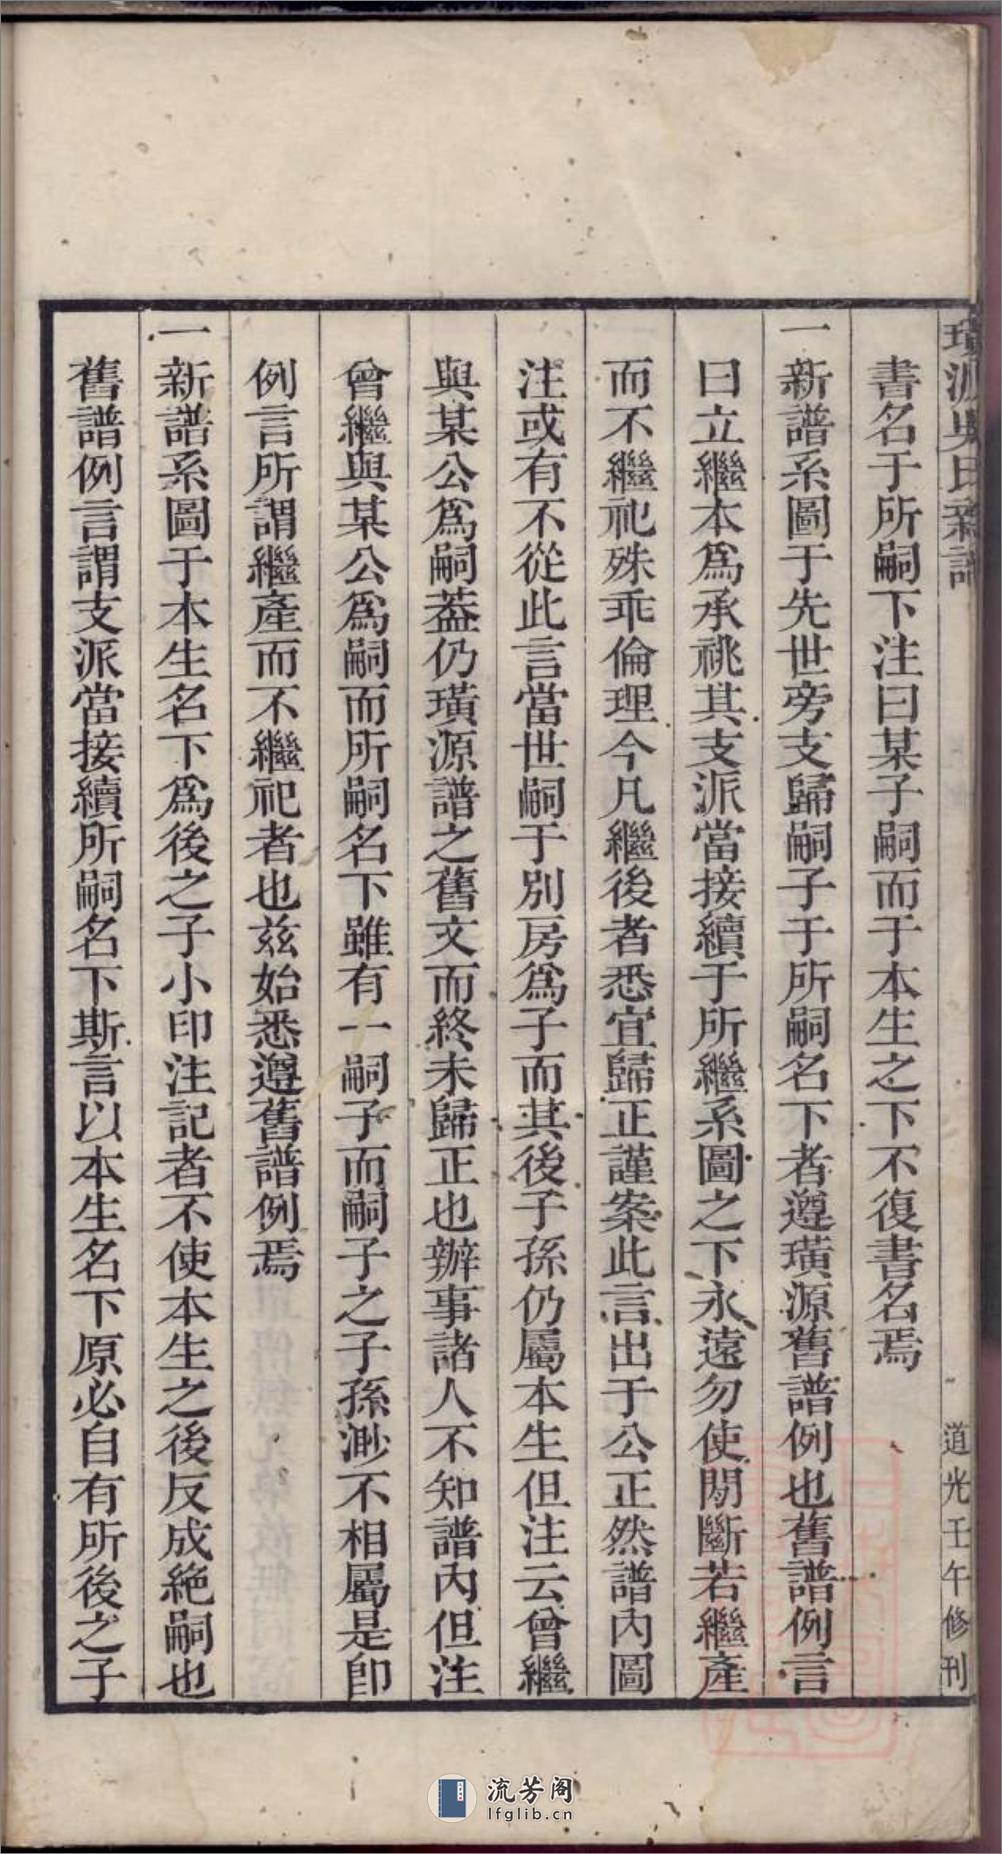 璜源吳氏新譜
道光壬午修刊
書名于所嗣下注曰某子嗣而于本生之下不復書名焉
一新譜系圖于先世旁支歸嗣子于所嗣名下者遵璜源舊譜例也舊譜例言
曰立繼本爲承祧其支派當接續于所繼系圖之下永遠勿使間斷若繼產
而不繼祀殊乖倫理今凡繼後者悉宜歸正謹案此言出于公正然譜內圖
注或有不從此言當世嗣于別房爲子而其後子孫仍屬本生但注云曾繼
與某公爲嗣葢仍璜源譜之舊文而終未歸正也辦事諸人不知譜內但注
曾繼與某公爲嗣而所嗣名下雖有一嗣子而嗣子之子孫渺不相屬是卽
例言所謂繼產而不繼祀者也玆始悉遵舊譜例焉
一新譜系圖于本生名下爲後之子小印注記者不使本生之後反成絶嗣也
舊譜例言謂支派當接續所嗣名下斯言以本生名下原必自有所後之子
流芳阁
lfglib.cn